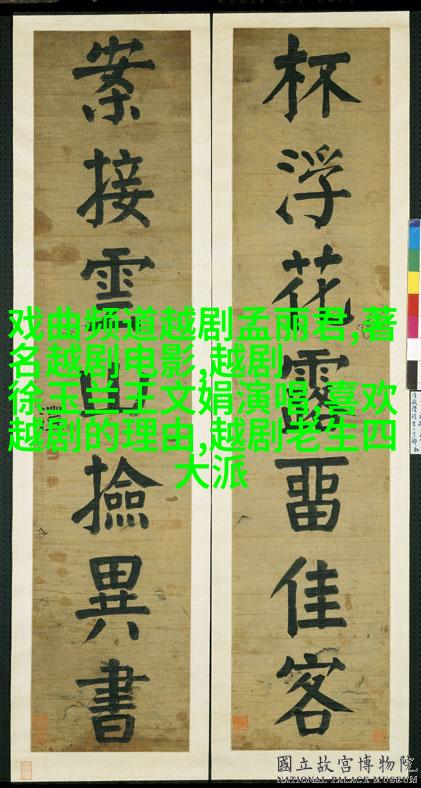 戏曲频道越剧孟丽君,著
名越剧电影,越剧
徐玉兰王文娟演唱,喜欢
越剧的理由,越剧老生四
大派
杯浮花露畱佳客
案接雲山撿異書
國立故宮博物院
NATIONAL PALACE MUSEUM